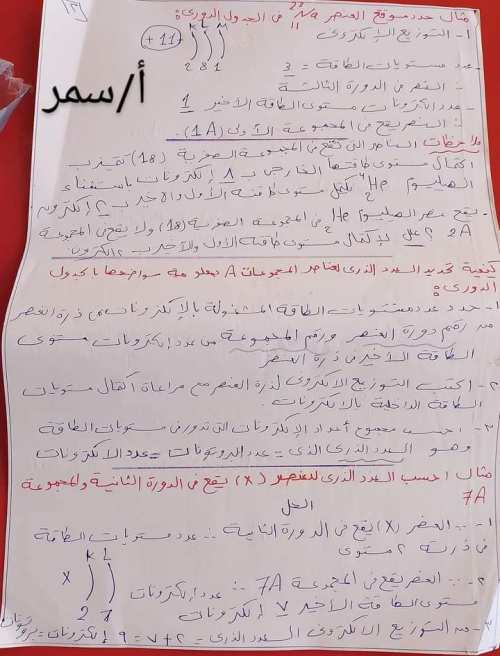 (٣)
مثال حدد موقع العنصر ²³₁₁Na فى الجدول الدورى:
١- التوزيع الإلكترونى
K L M
+11
2 8 1
عدد مستويات الطاقة = 3
∴ العنصر فى الدورة الثالثة
عدد إلكترونات مستوى الطاقة الأخير 1
∴ العنصر يقع فى المجموعة الأولى (1A).
أ/سمر
ملاحظات العناصر التى تقع فى المجموعة الصفرية (18) تميزت
اكتمال مستوى طاقتها الخارجى ب ٨ إلكترونات باستثناء
الهيليوم ⁴₂He يكتمل مستوى طاقته الأول والأخير ب ٢ إلكترون
- يقع عنصر الهيليوم ₂He فى المجموعة الصفرية (18) ولا يقع فى المجموعة
2A ؟ علل لاكتمال مستوى طاقته الأول والأخير ب ٢ إلكترون.
كيفية تحديد العدد الذرى لعناصر المجموعات A بمعلومية مواضعها بالجدول
الدورى:
١- حدد عدد مستويات الطاقة المشغولة بالإلكترونات فى ذرة العنصر
من رقم دورة العنصر ورقم المجموعة من عدد إلكترونات مستوى
الطاقة الأخير فى ذرة العنصر
٢- اكتب التوزيع الالكترونى لذرة العنصر مع مراعاة اكتمال مستويات
الطاقة الداخلية بالالكترونات.
٣- احسب مجموع أعداد الإلكترونات التى تدور فى مستويات الطاقة
وهو العدد الذرى الذى = عدد البروتونات = عدد الالكترونات
مثال احسب العدد الذرى للعنصر (X) يقع فى الدورة الثانية والمجموعة
7A
الحل
١- ∵ العنصر (X) يقع فى الدورة الثانية ∴ عدد مستويات الطاقة
فى ذرته ٢ مستوى
K L
X
2 7
٢- ∵ العنصر يقع فى المجموعة 7A ∴ عدد إلكترونات
مستوى الطاقة الأخير ٧ إلكترونات
٣- من التوزيع الالكترونى العدد الذرى = ٢ + ٧ = ٩ إلكترونات = بروتونات